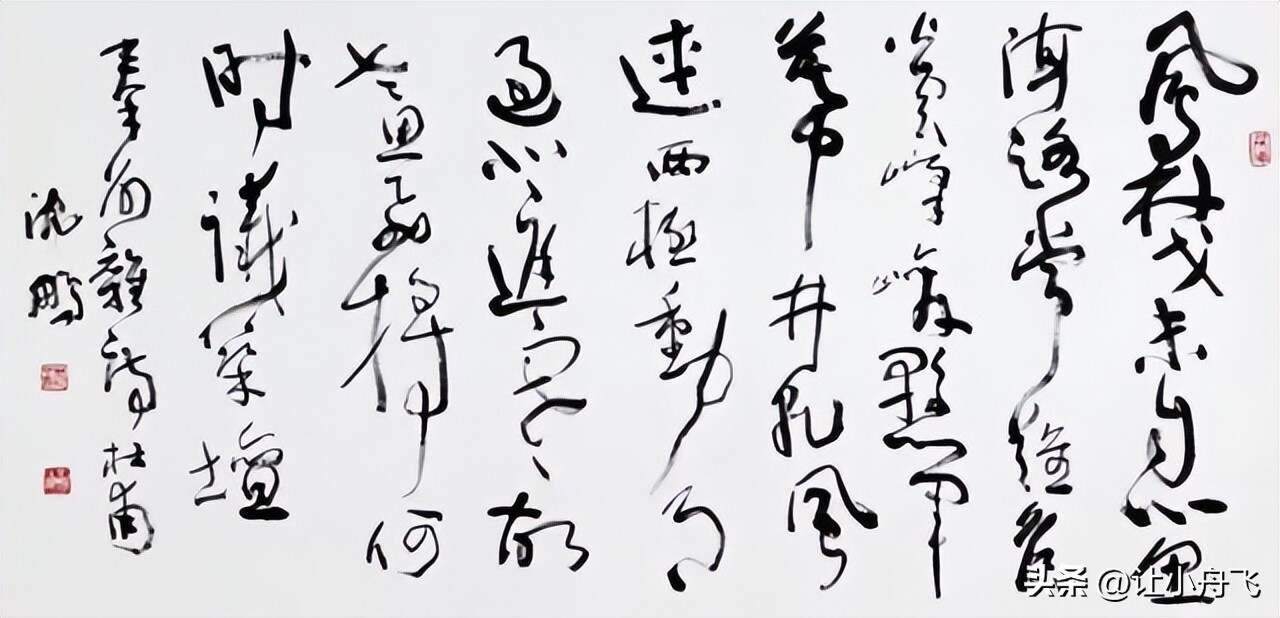 鳳林戈未息魚
海路常難候
火雲峰峻懸軍
幕井乾風
連西極動月
過北庭寒故
老思飛將何
時議築壇
秦州雜詩 杜甫
沈鵬
头条 @让小舟飞